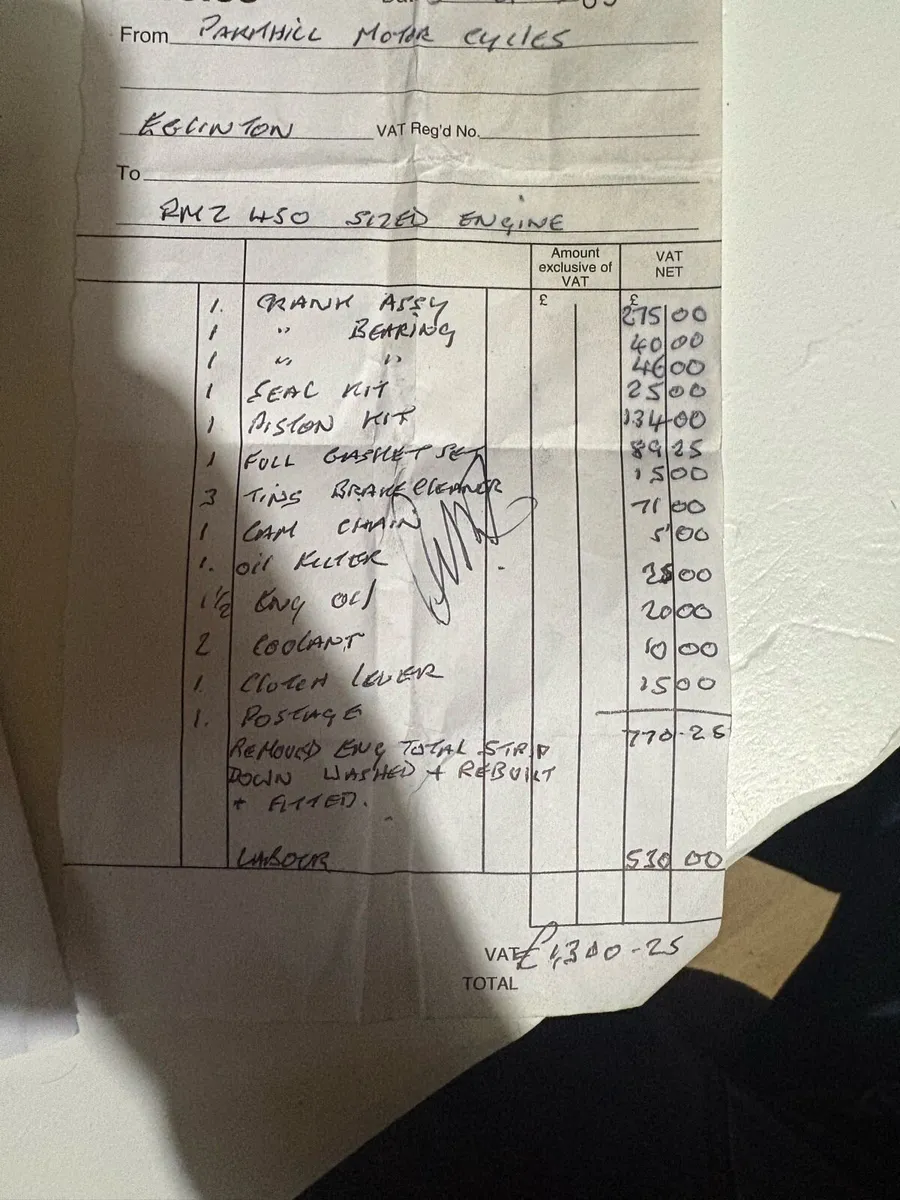 From PARKHILL MOTOR CYCLES
EGLINTON VAT Reg'd No.
To
RMZ 450 SIZED ENGINE
Amount exclusive of VAT VAT NET
£ £
1. CRANK ASSY 275 00
1 " BEARING 40 00
1 " " 46 00
1 SEAL KIT 25 00
1 PISTON KIT 134 00
1 FULL GASKET SET 89 25
3 TINS BRAKE CLEANER 15 00
1 CAM CHAIN 71 00
1. OIL FILTER 5 00
1 1/2 ENG OIL 00
2 COOLANT 20 00
1. CLUTCH LEVER 10 00
1. POSTAGE 15 00
770-25
REMOVED ENG TOTAL STRIP
DOWN WASHED + REBUILT
+ FITTED.
LABOUR 530 00
VAT £1,300-25
TOTAL